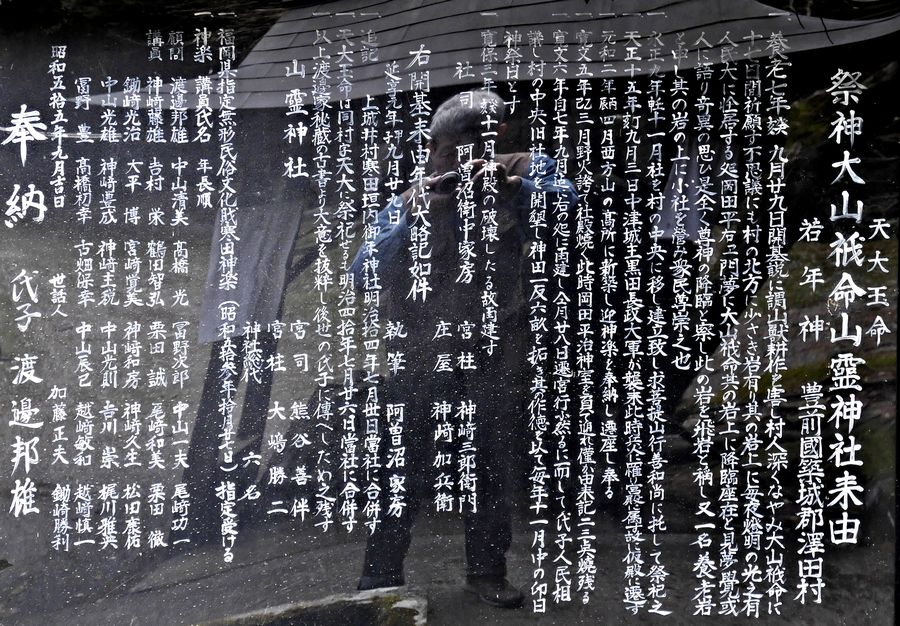 天大玉命
祭神大山祇命山霊神社来由
若年神 豊前國築城郡澤田村
一、養老七年 九月廿九日開基説に謂山獣耕作を害し村人深くなやみ大山祇命に
十七日間祈願す不思議にも村の北方に小さき岩有り其の岩上に毎夜燈明の光之有
人民大に怪居する処岡田平石ヱ門夢に大山祇命其の岩上に降臨座在と見夢覚て或
人に語り奇異の思ひ是全く尊神の降臨と察し此の岩を飛岩と称し又一名養老岩
と申其の岩の上に小社を営み衆民尊崇之也
年 一月社を村の中央に移し建立致し求菩提山行善和尚に托して祭祀之
天正十五年 九月三日中津城主黒田長政大軍が襲来此時兵火に罹り
元和二年 四月西方山の高所に新築し迎神楽を奉納し遷座し奉る
寛文五年 三月野火 社殿焼く此時岡田平治神霊を負て逃れ僅か由来記二三点焼残る
寛文 年 九月 岩の処に再建し仝月廿八日遷宮行
議し村の中央旧社地を開墾し神田一反六畝を拓き其の作徳を以て毎年十一月中の卯日
神祭日とす
一、寛保三年 十一月神殿の破壊したる故再建す
社司 阿曽沼衛中家房 宮柱 神崎三郎衛門
庄屋 神崎加兵衛
右開基来由年代大略記如件
延享元年 九月廿九日 執筆 阿曽沼家房
一、追記 上城井村寒田垣内御年神社明治拾四年七月 日當社に合併す
天大玉命は同村 祭祀せるも明治四拾年七月廿六日當社に合併す
以上渡邊家秘蔵の古書より大意を抜粋し後世の氏子に傳へしため之残す
山霊神社 宮司 熊谷善伴
宮柱 大嶋勝二
神社総代 六名
一、福岡県指定無形民俗文化財寒田神楽 (昭和五拾参年拾月 日)指定受ける
神楽 講員氏名 年長順
顧問 渡邊邦雄 中山清美 高橋光 冨野次郎 中山一夫 尾崎功一
講員 神崎藤雄 吉村栄 鶴田智弘 栗田誠 尾崎和美 栗田徹
鋤崎光治 大平博 宮崎覚美 神崎和房 神崎久生 松田康佑
中山光雄 神崎豊成 神崎主税 中山光則 吉川崇 梶川雅英
冨野豊 高橋初幸 古畑保幸 中山辰己 越崎敏和 越崎慎一
昭和五拾五年九月吉日 世話人 加藤正夫 鋤崎勝利
奉納 氏子 渡邉邦雄